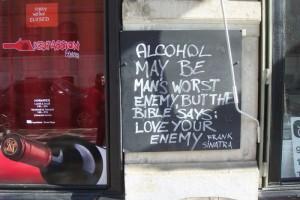 SORRY
WE'RE
CLOSED
ALCOHOL
MAY BE
MAN'S WORST
ENEMY, BUT THE
BIBLE SAYS:
LOVE YOUR
ENEMY
FRANK
SINATRA